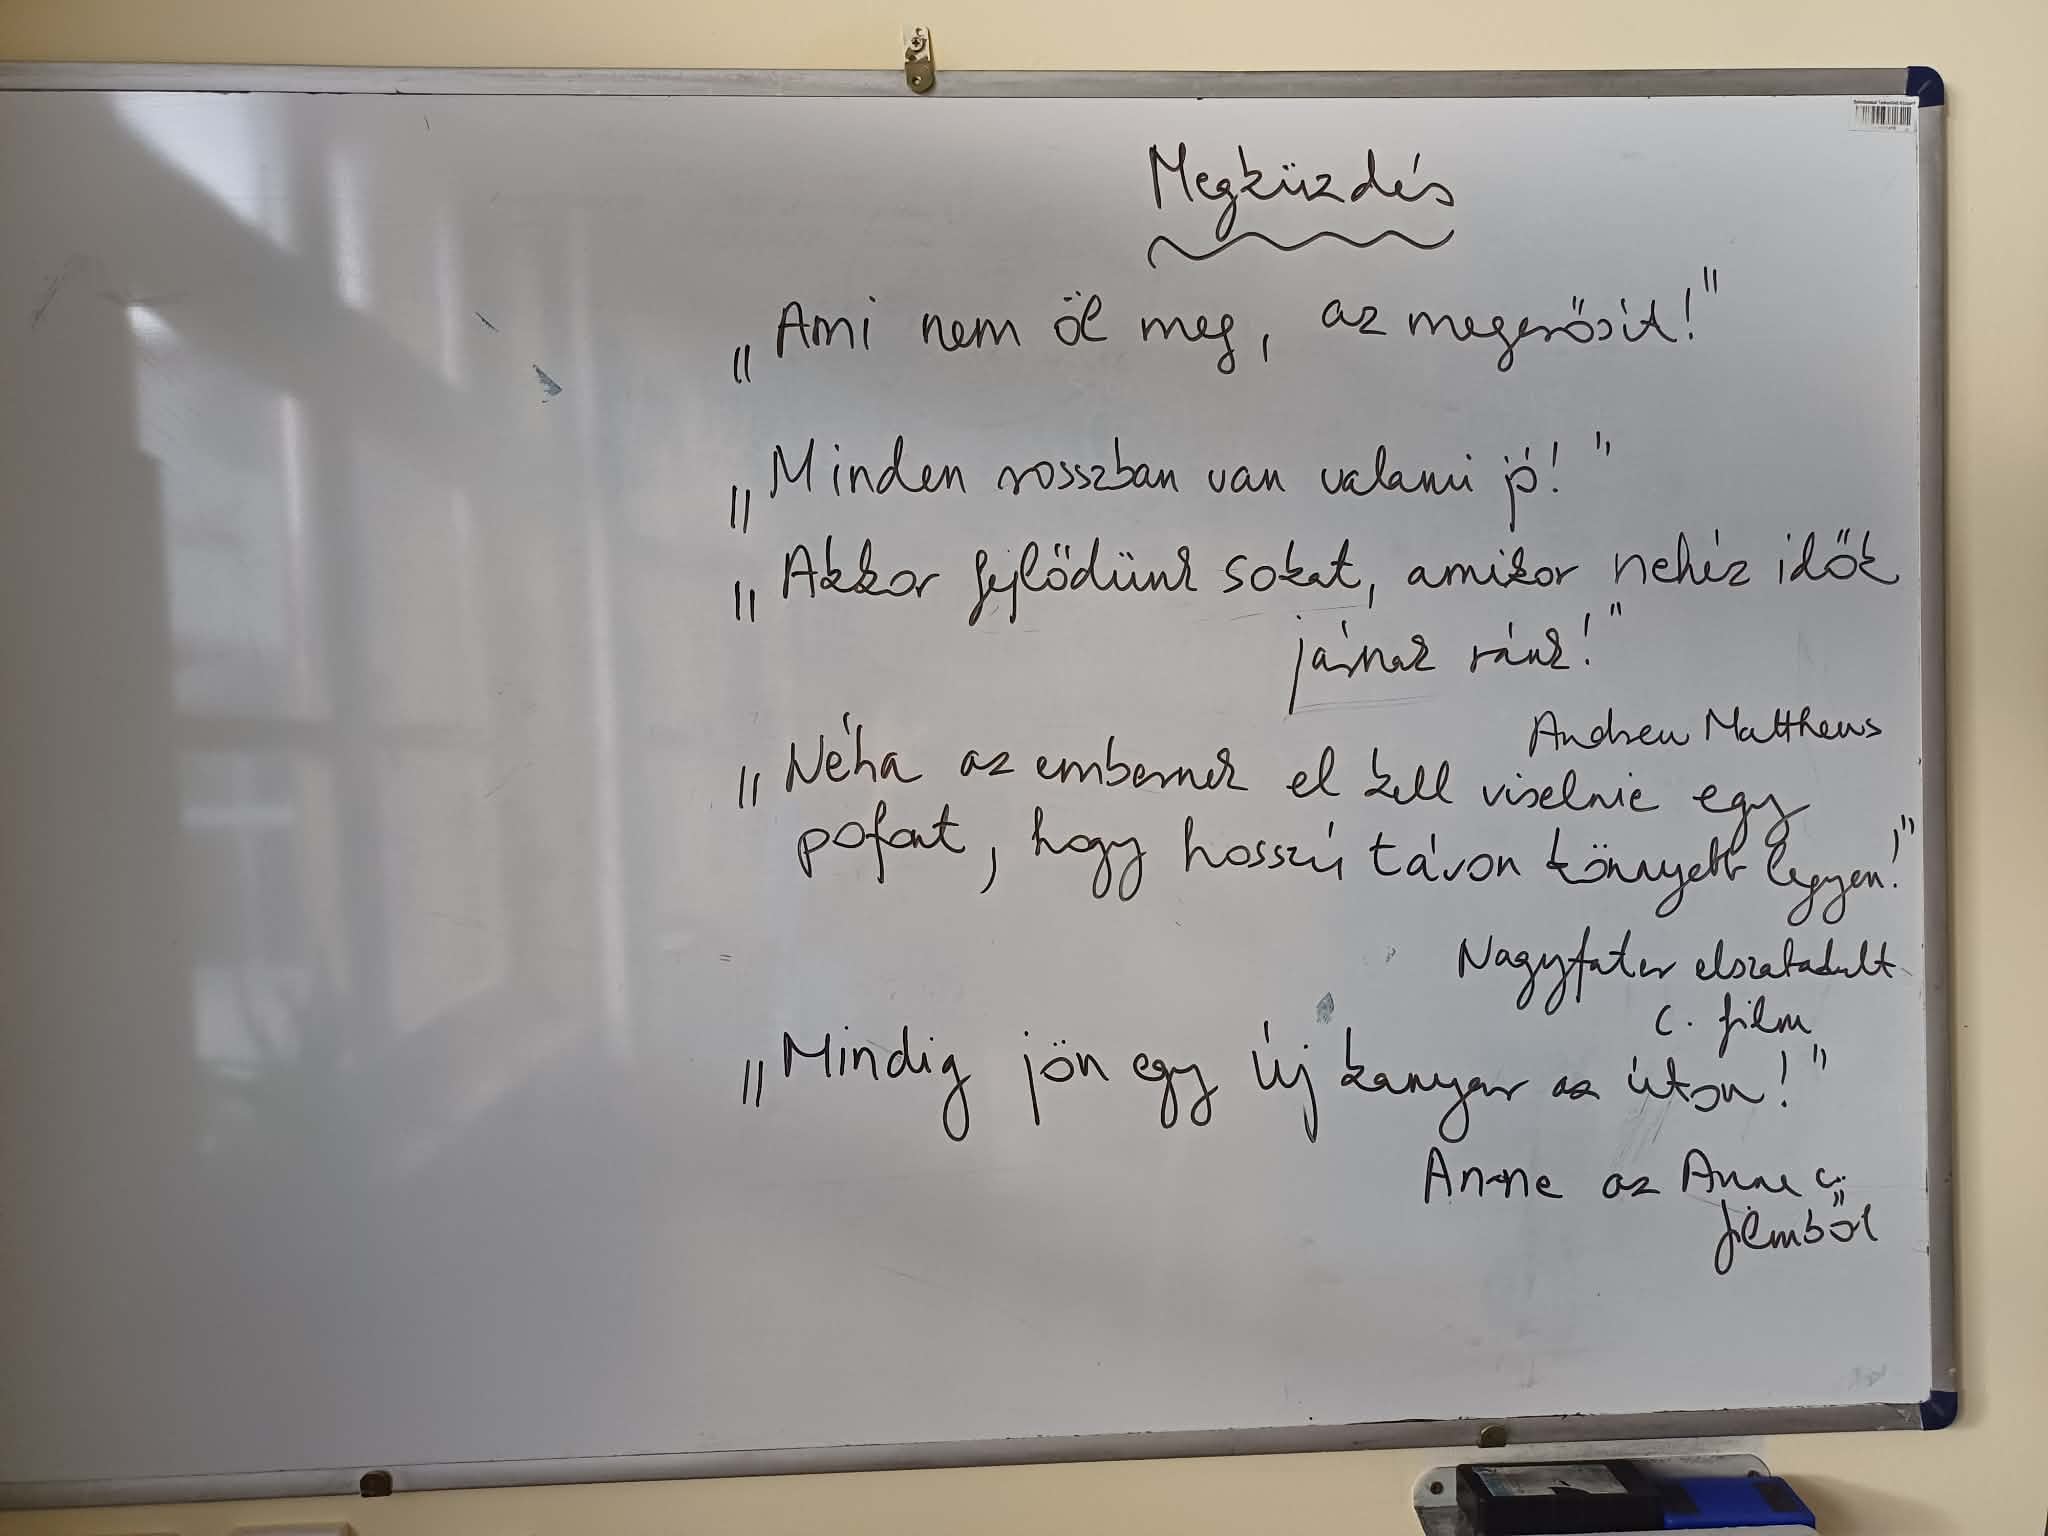 Megküzdés
„Ami nem öl meg, az megerősít!"
„Minden rosszban van valami jó!"
„Akkor fejlődünk sokat, amikor nehéz idők
járnak ránk!"
Andrew Matthews
„Néha az embernek el kell viselnie egy
pofont, hogy hosszú távon könnyebb legyen!"
Nagyfater elszabadult
c. film
„Mindig jön egy új kanyar az úton!"
Anne az Anne c.
filmből